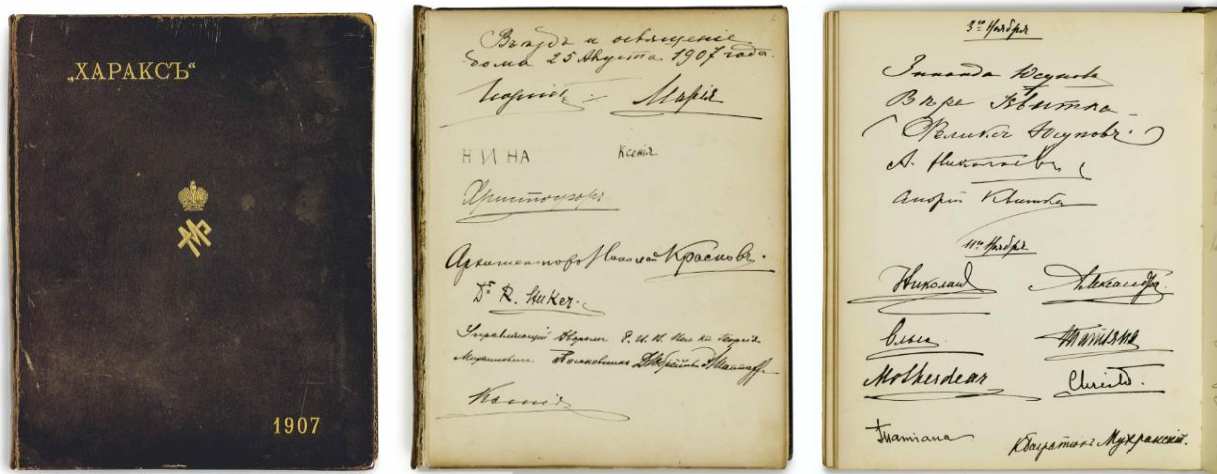 „ХАРАКСЪ“
1907
Въѣздъ и освященіе
дома 25 Августа 1907 года.
Георгій Марія
НИНА Ксенія
Христофоръ
Архитекторъ Николай Красновъ.
Dr R. Stuker.
Управляющій Дворомъ Е. И. В. Вел. Кн. Георгія
Михаиловича Полковникъ
Ксенія
3го Ноября
Зинаида Юсупова
Вѣра Квитка
Феликсъ Юсуповъ.
А. Николаевъ
Андрей Квитка
11го Ноября
Николай Александра.
Ольга Татьяна
Motherdear Christo.
Татіана К. Багратіонъ Мухранскій.